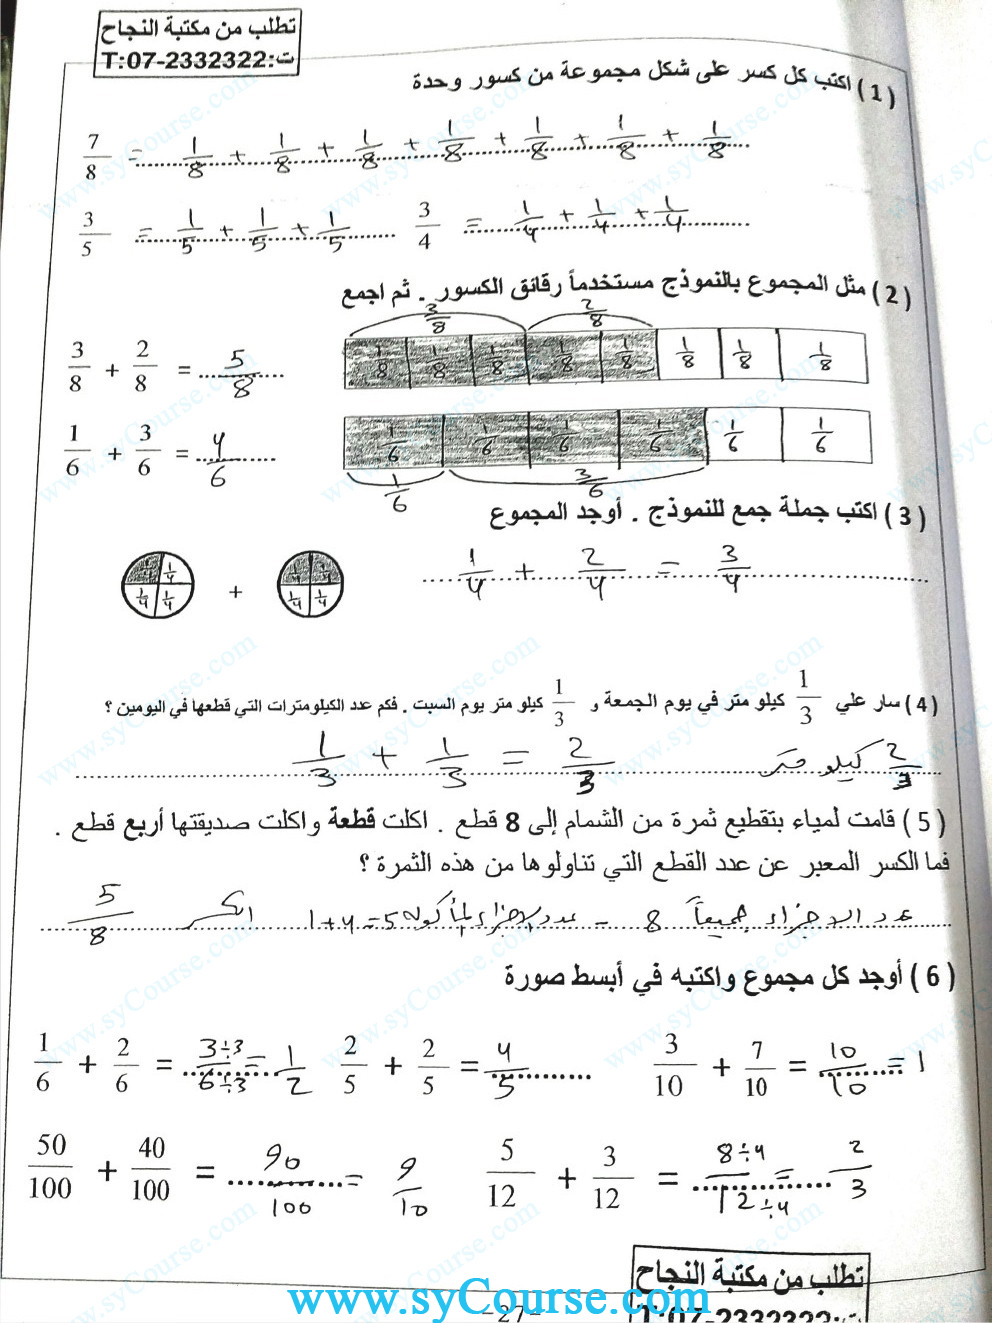 تطلب من مكتبة النجاح
ت:T:07-2332322
( 1 ) اكتب كل كسر على شكل مجموعة من كسور وحدة
7/8 = 1/8 + 1/8 + 1/8 + 1/8 + 1/8 + 1/8 + 1/8
3/5 = 1/5 + 1/5 + 1/5   3/4 = 1/4 + 1/4 + 1/4
( 2 ) مثل المجموع بالنموذج مستخدماً رقائق الكسور . ثم اجمع
3/8 2/8
3/8 + 2/8 = 5/8   1/8 1/8 1/8 1/8 1/8 1/8 1/8 1/8
1/6 + 3/6 = 4/6   1/6 1/6 1/6 1/6 1/6 1/6
1/6 3/6
( 3 ) اكتب جملة جمع للنموذج . أوجد المجموع
1/4 1/4 1/4 1/4 + 1/4 1/4 1/4 1/4   1/4 + 2/4 = 3/4
( 4 ) سار علي 1/3 كيلو متر في يوم الجمعة و 1/3 كيلو متر يوم السبت . فكم عدد الكيلومترات التي قطعها في اليومين ؟
1/3 + 1/3 = 2/3   2/3 كيلو متر
( 5 ) قامت لمياء بتقطيع ثمرة من الشمام إلى 8 قطع . اكلت قطعة واكلت صديقتها أربع قطع .
فما الكسر المعبر عن عدد القطع التي تناولوها من هذه الثمرة ؟
عدد الاجزاء جميعاً 8 - عدد الاجزاء المأكولة 5 = 4 + 1 الكسر 5/8
( 6 ) أوجد كل مجموع واكتبه في أبسط صورة
1/6 + 2/6 = 3÷3/6÷3 = 1/2   2/5 + 2/5 = 4/5   3/10 + 7/10 = 10/10 = 1
50/100 + 40/100 = 90/100 = 9/10   5/12 + 3/12 = 8÷4/12÷4 = 2/3
تطلب من مكتبة النجاح
ت:T:07-2332322
-27-
www.syCourse.com